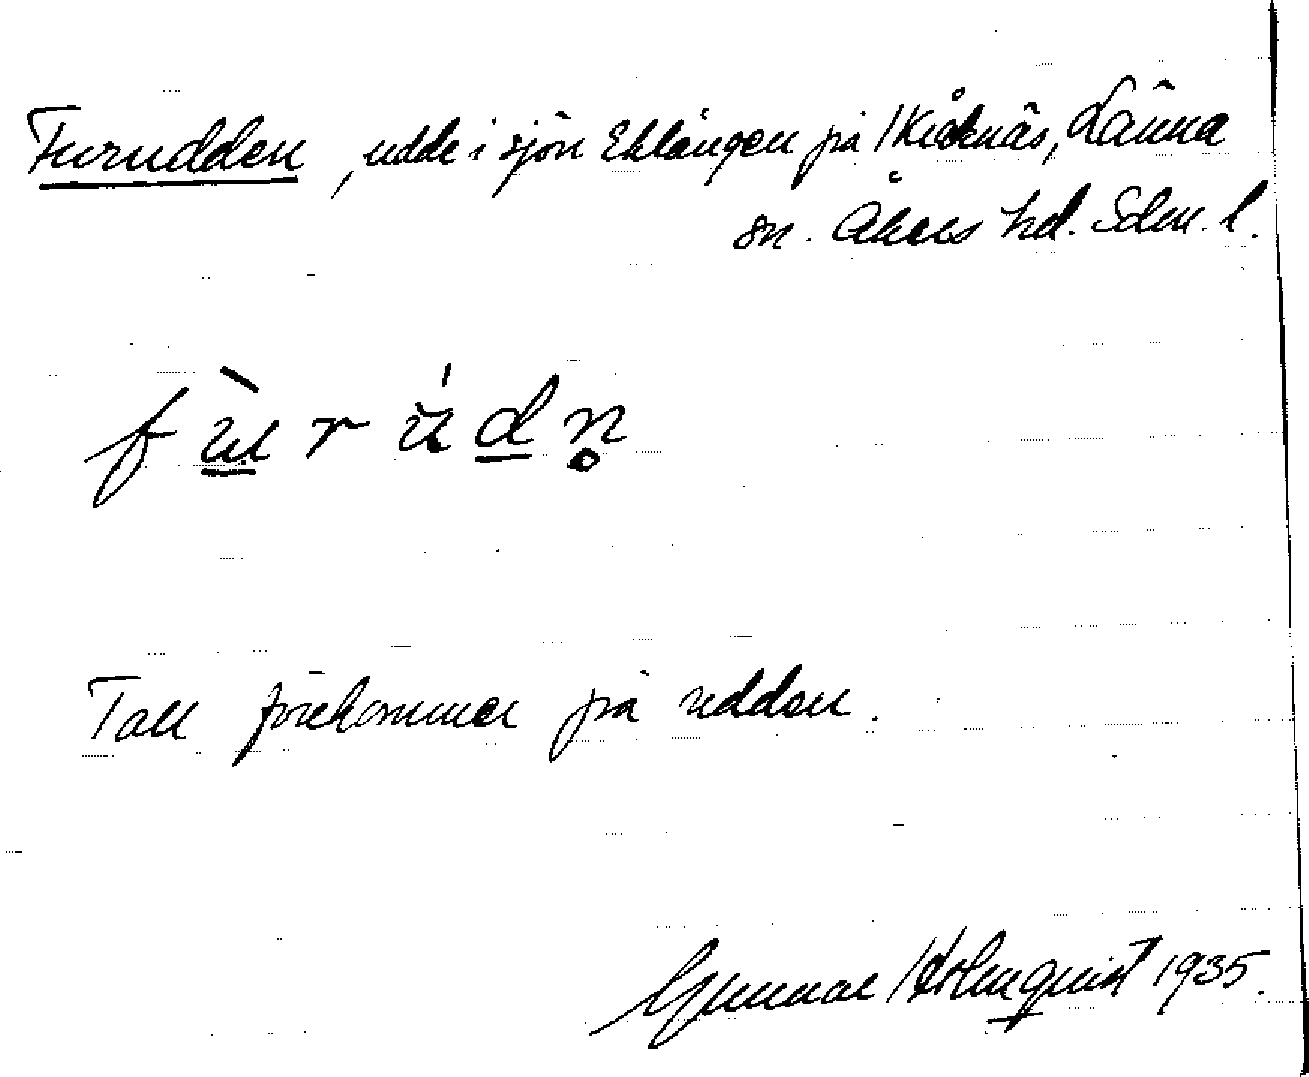 Furudden, udde i sjön Eklången på Kråknäs, Länna
sn. Åkers hd. Södm. l.
fùrúdn̥
Tall förekommer på udden.
Gunnar Holmquist 1935.